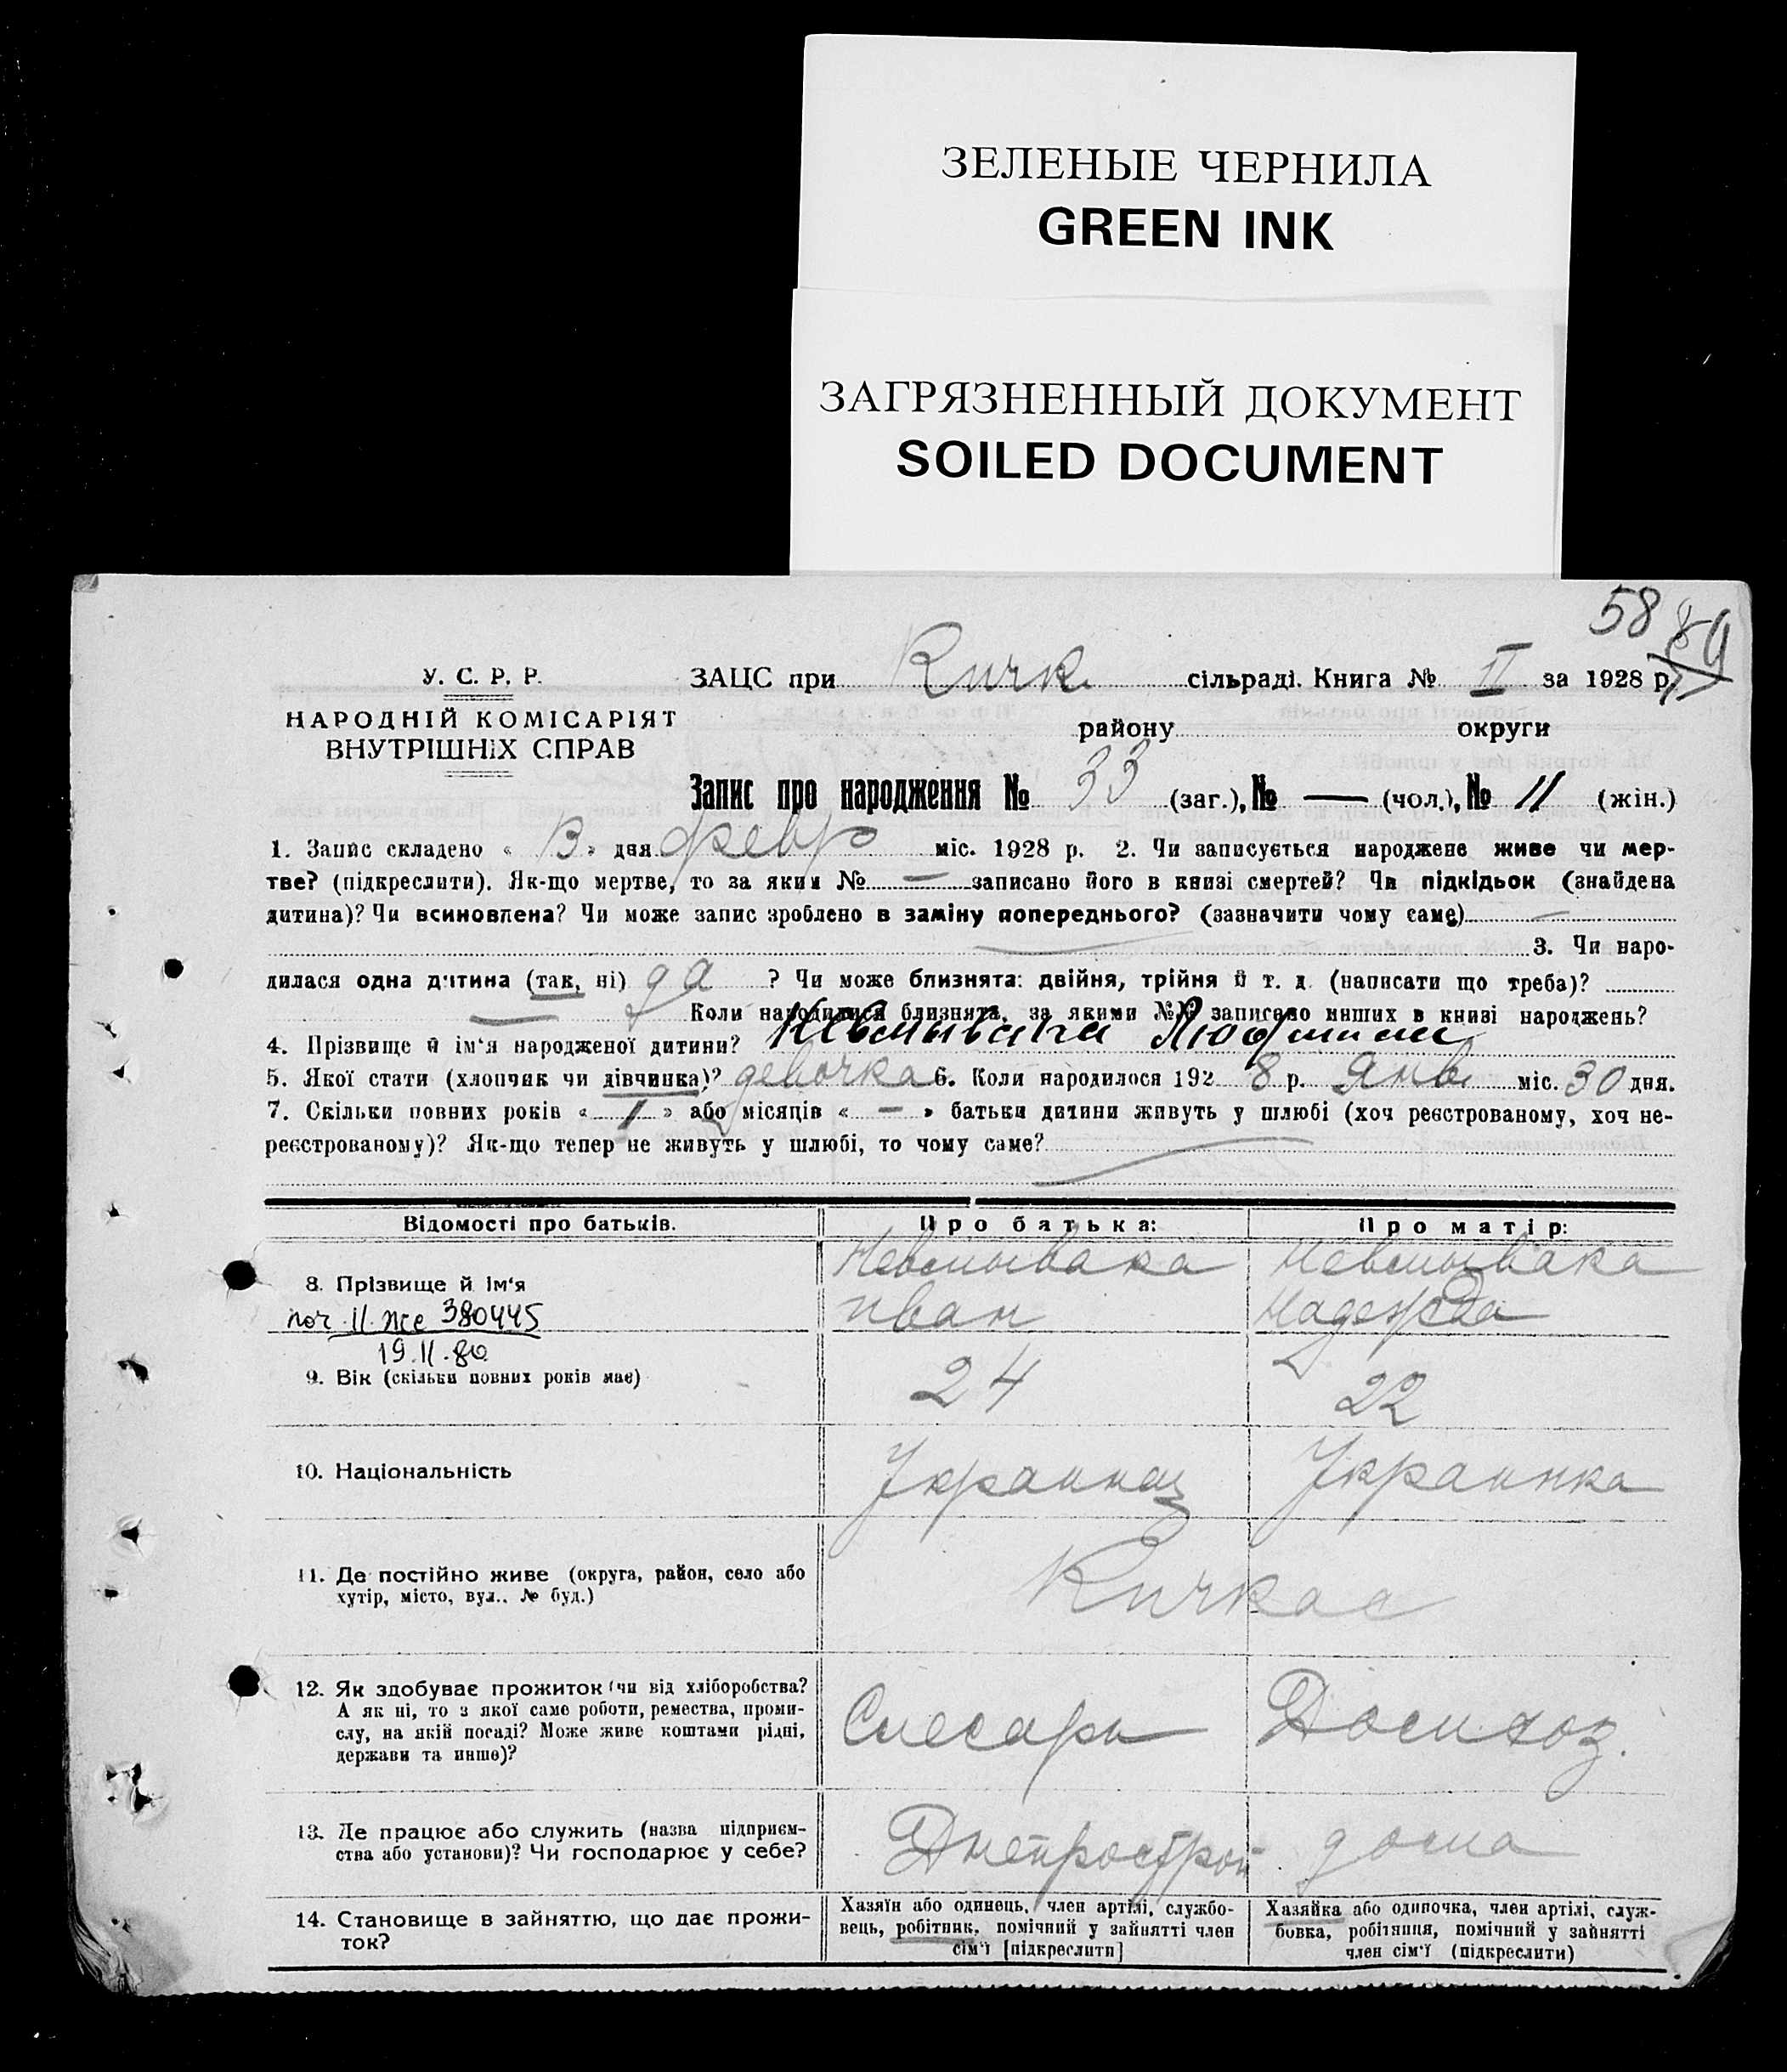 ЗЕЛЕНЫЕ ЧЕРНИЛА
GREEN INK
ЗАГРЯЗНЕННЫЙ ДОКУМЕНТ
SOILED DOCUMENT
58 89
У. С. Р. Р. ЗАЦС при Кичк. сільраді. Книга № II за 1928 р.
НАРОДНІЙ КОМІСАРІЯТ району округи
ВНУТРІШНІХ СПРАВ
Запис про народження № 33 (заг.), № — (чол.), № 11 (жін.)
1. Запис складено « 13 » дня февр міс. 1928 р. 2. Чи записується народжене живе чи мер-
тве? (підкреслити). Як-що мертве, то за яким № — записано його в книзі смертей? Чи підкідьок (знайдена
дитина)? Чи всиновлена? Чи може запис зроблено в заміну попереднього? (зазначити чому саме) —
3. Чи наро-
дилася одна дитина (так, ні) да ? Чи може близнята: двійня, трійня й т. д. (написати що треба)?
— Коли народилися близнята, за якими №№ записано инших в книзі народжень?
4. Прізвище й ім'я народженої дитини? Невмывака
5. Якої статі (хлопчик чи дівчинка)? девочка 6. Коли народилося 192 8 р. Янв. міс. 30 дня.
7. Скільки повних років « 1 » або місяців « — » батьки дитини живуть у шлюбі (хоч реєстрованому, хоч не-
реєстрованому)? Як-що тепер не живуть у шлюбі, то чому саме?
Відомості про батьків. Про батька: Про матір:
8. Прізвище й ім'я Невмывака Иван Невмывака Надежда
II ЖС 380445
19.11.80
9. Вік (скільки повних років має) 24 22
10. Національність Украинец Украинка
11. Де постійно живе (округа, район, село або
хутір, місто, вул., № буд.) Кичкас
12. Як здобуває прожиток (чи від хліборобства?
А як ні, то з якої саме роботи, ремества, проми-
слу, на якій посаді? Може живе коштами рідні,
держави та инше)? Слесарь Домихоз.
13. Де працює або служить (назва підприєм-
ства або установи)? Чи господарює у себе? Днепрострой дома
14. Становище в зайняттю, що дає прожи-
ток?
Хазяїн або одинець, член артілі, службо-
вець, робітник, помічний у зайнятті член
сім'ї [підкреслити]
Хазяйка або одиночка, член артілі, служ-
бовка, робітниця, помічний у зайнятті
член сім'ї (підкреслити)